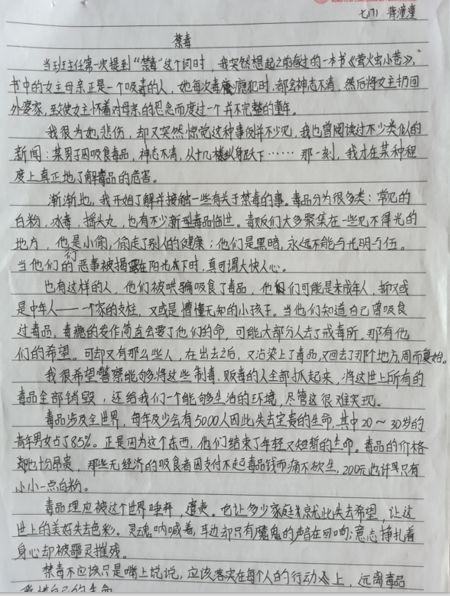 七(7) 蒋滢滢
禁毒
当班主任第一次提到“禁毒”这个词时，我突然想起之前看过的一本书《萤火虫小巷》，
书中的女主母亲正是一个吸毒的人，她每次毒瘾犯时，都会神志不清，然后将女主扔回
外婆家，致使女主怀着对母亲的思念而度过一个并不完整的童年。
我很为她悲伤，却又突然惊觉这种事例并不少见，我也曾阅读过不少类似的
新闻：某男子因吸食毒品，神志不清，从十几楼纵身跃下……那一刻，我才在某种程
度上真正地了解毒品的危害。
渐渐地，我开始了解并接触一些有关于禁毒的事。毒品分为很多类：常见的
白粉，冰毒，摇头丸，也有不少新型毒品临世。毒贩们大多聚集在一些见不得光的
地方，他是小偷，偷走了别人的健康；他们是黑暗，永远不能与光明为伍。
当他们的恶事被揭露在阳光底下时，真可谓大快人心。
也有这样的人，他们被哄骗吸食了毒品，他们可能是未成年人，抑或
是中年人——一个家的支柱，又或是懵懂无知的小孩子。当他们知道自己曾吸食
过毒品，毒瘾的发作简直会要了他们的命，可能大部分人去了戒毒所，那有他
们的希望。可却又有那么些人，在出去之后，又沾染上了毒品，又回去了那个地方，周而复始。
我很希望警察能够将这些制毒、贩毒的人全部抓起来，将这世上所有的
毒品全部销毁，还给我们一个能够生活的环境，尽管这很难实现。
毒品涉及全世界，每年及少会有5000人因此失去宝贵的生命，其中20～30岁的
青年男女占了85%。正是因为这个东西，他们结束了年轻又短暂的生命。毒品的价格
都也均昂贵，那些无经济的吸食者因支付不起毒品钱而痛不欲生，200元也许只有
小小一点白粉。
毒品理应被这个世界唾弃，遗弃。也让多少家庭就此失去希望，让这
世上的美好失去色彩。灵魂呐喊着，耳边却只有魔鬼的声音在回响；意志挣扎着
身心却被罪灵摧残。
禁毒不应该只是嘴上说说，应该落实在每个人的行动上，远离毒品